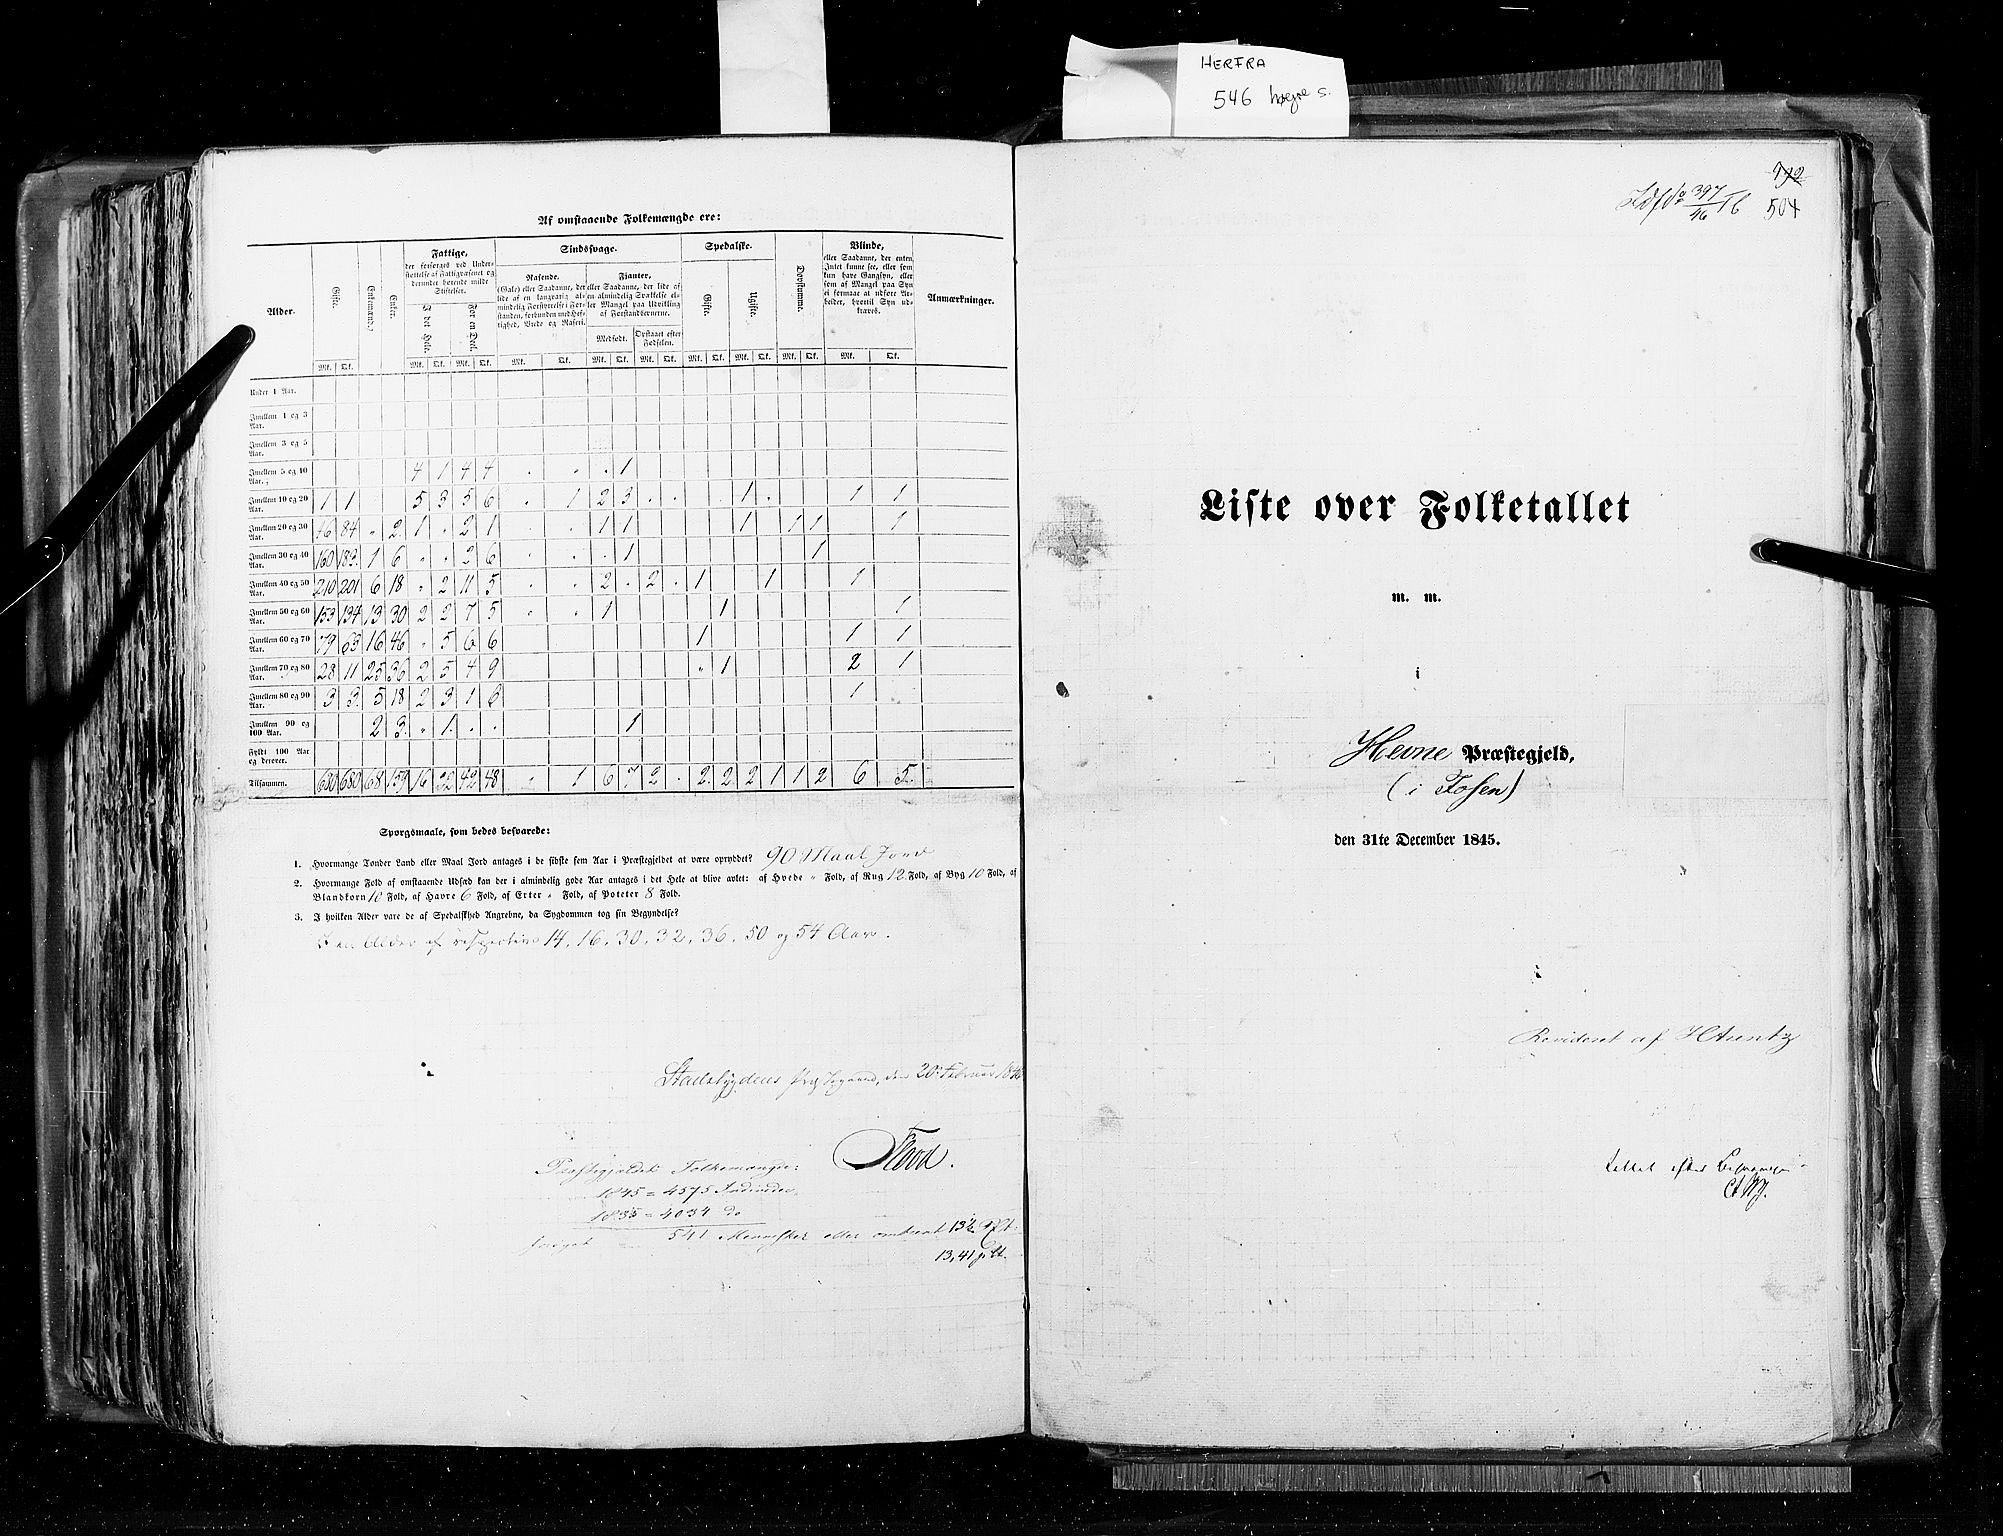 HERFRA
546 høgre s.
Af omstaaende Folkemængde ere:
Alder. Gifte. Enkemænd. Enker. Fattige, der forsørges ved Understøttelse af Fattigvæsenet og derunder hørende milde Stiftelser. Sindssvage. Spedalske. Døvstumme. Blinde, eller Saadanne, der enten Intet kunne see, eller som kun have Gangsyn, eller som af Mangel paa Syn ei formaae at udføre Arbeider, hvortil Syn udkræves. Anmærkninger.
I det Hele. For en Deel. Rasende. (Gale) eller Saadanne, der lide af en langvarig almindelig Forstyrrelse i Forstanden, forbunden med Heftighed, Vrede og Raseri. Fjanter, eller Saadanne, der lide af en almindelig Svækkelse eller Mangel paa Udvikling af Forstandsevnerne. Gifte. Ugifte.
Medfødt. Opstaaet efter Fødselen.
Mk. Qk. Mk. Qk. Mk. Qk. Mk. Qk. Mk. Qk. Mk. Qk. Mk. Qk. Mk. Qk. Mk. Qk. Mk. Qk.
Under 1 Aar.
Imellem 1 og 3 Aar.
Imellem 3 og 5 Aar.
Imellem 5 og 10 Aar. 4 1 4 4 " " . 1
Imellem 10 og 20 Aar. 1 1 5 3 5 6 " 1 2 3 . . 1 . 1 1
Imellem 20 og 30 Aar. 46 84 " 2 1 " 2 1 " " 1 1 1 1 1 1
Imellem 30 og 40 Aar. 160 183 1 6 " " 2 6 " " . 1 1
Imellem 40 og 50 Aar. 210 201 6 18 " 2 11 5 " " 2 . 2 . 1 1 1
Imellem 50 og 60 Aar. 153 134 13 30 2 2 7 5 " " 1 1 1
Imellem 60 og 70 Aar. 79 63 16 46 " 5 6 6 1 1 1
Imellem 70 og 80 Aar. 28 11 25 36 2 5 4 9 " 1 2 1
Imellem 80 og 90 Aar. 3 3 5 18 2 3 1 6 1
Imellem 90 og 100 Aar. 2 3 " 1 . . 1
Fyldt 100 Aar og derover.
Tilsammen. 680 680 68 159 16 22 42 48 " 1 6 7 2 . 2 2 2 1 1 2 6 5
Spørgsmaale, som bedes besvarede:
1. Hvormange Tønder Land eller Maal Jord antages i de sidste fem Aar i Præstegjeldet at være opryddet? 90 Maal Jord
2. Hvormange Fold af omstaaende Udsæd kan der i almindelig gode Aar antages i det Hele at blive avlet: af Hvede " Fold, af Rug 12 Fold, af Byg 10 Fold, af
Blandkorn 10 Fold, af Havre 6 Fold, af Erter " Fold, af Poteter 8 Fold.
3. I hvilken Alder vare de af Spedalskhed Angrebne, da Sygdommen tog sin Begyndelse?
I en Alder af respective 14, 16, 30, 32, 36, 50 og 54 Aar.
Stadsbygdens Præstegaard, den 20 Februar 1846
Flood.
Præstegjeldets Folkemængde:
1845 = 4575 Individer
1835 = 4034 do
forøget 541 Mennesker eller omtrent 13½ pCt.
13,41 pCt.
992
504
397
46
Liste over Folketallet
m. m.
i
Hevne Præstegjeld,
(i Fosen)
den 31te December 1845.
Revideret af